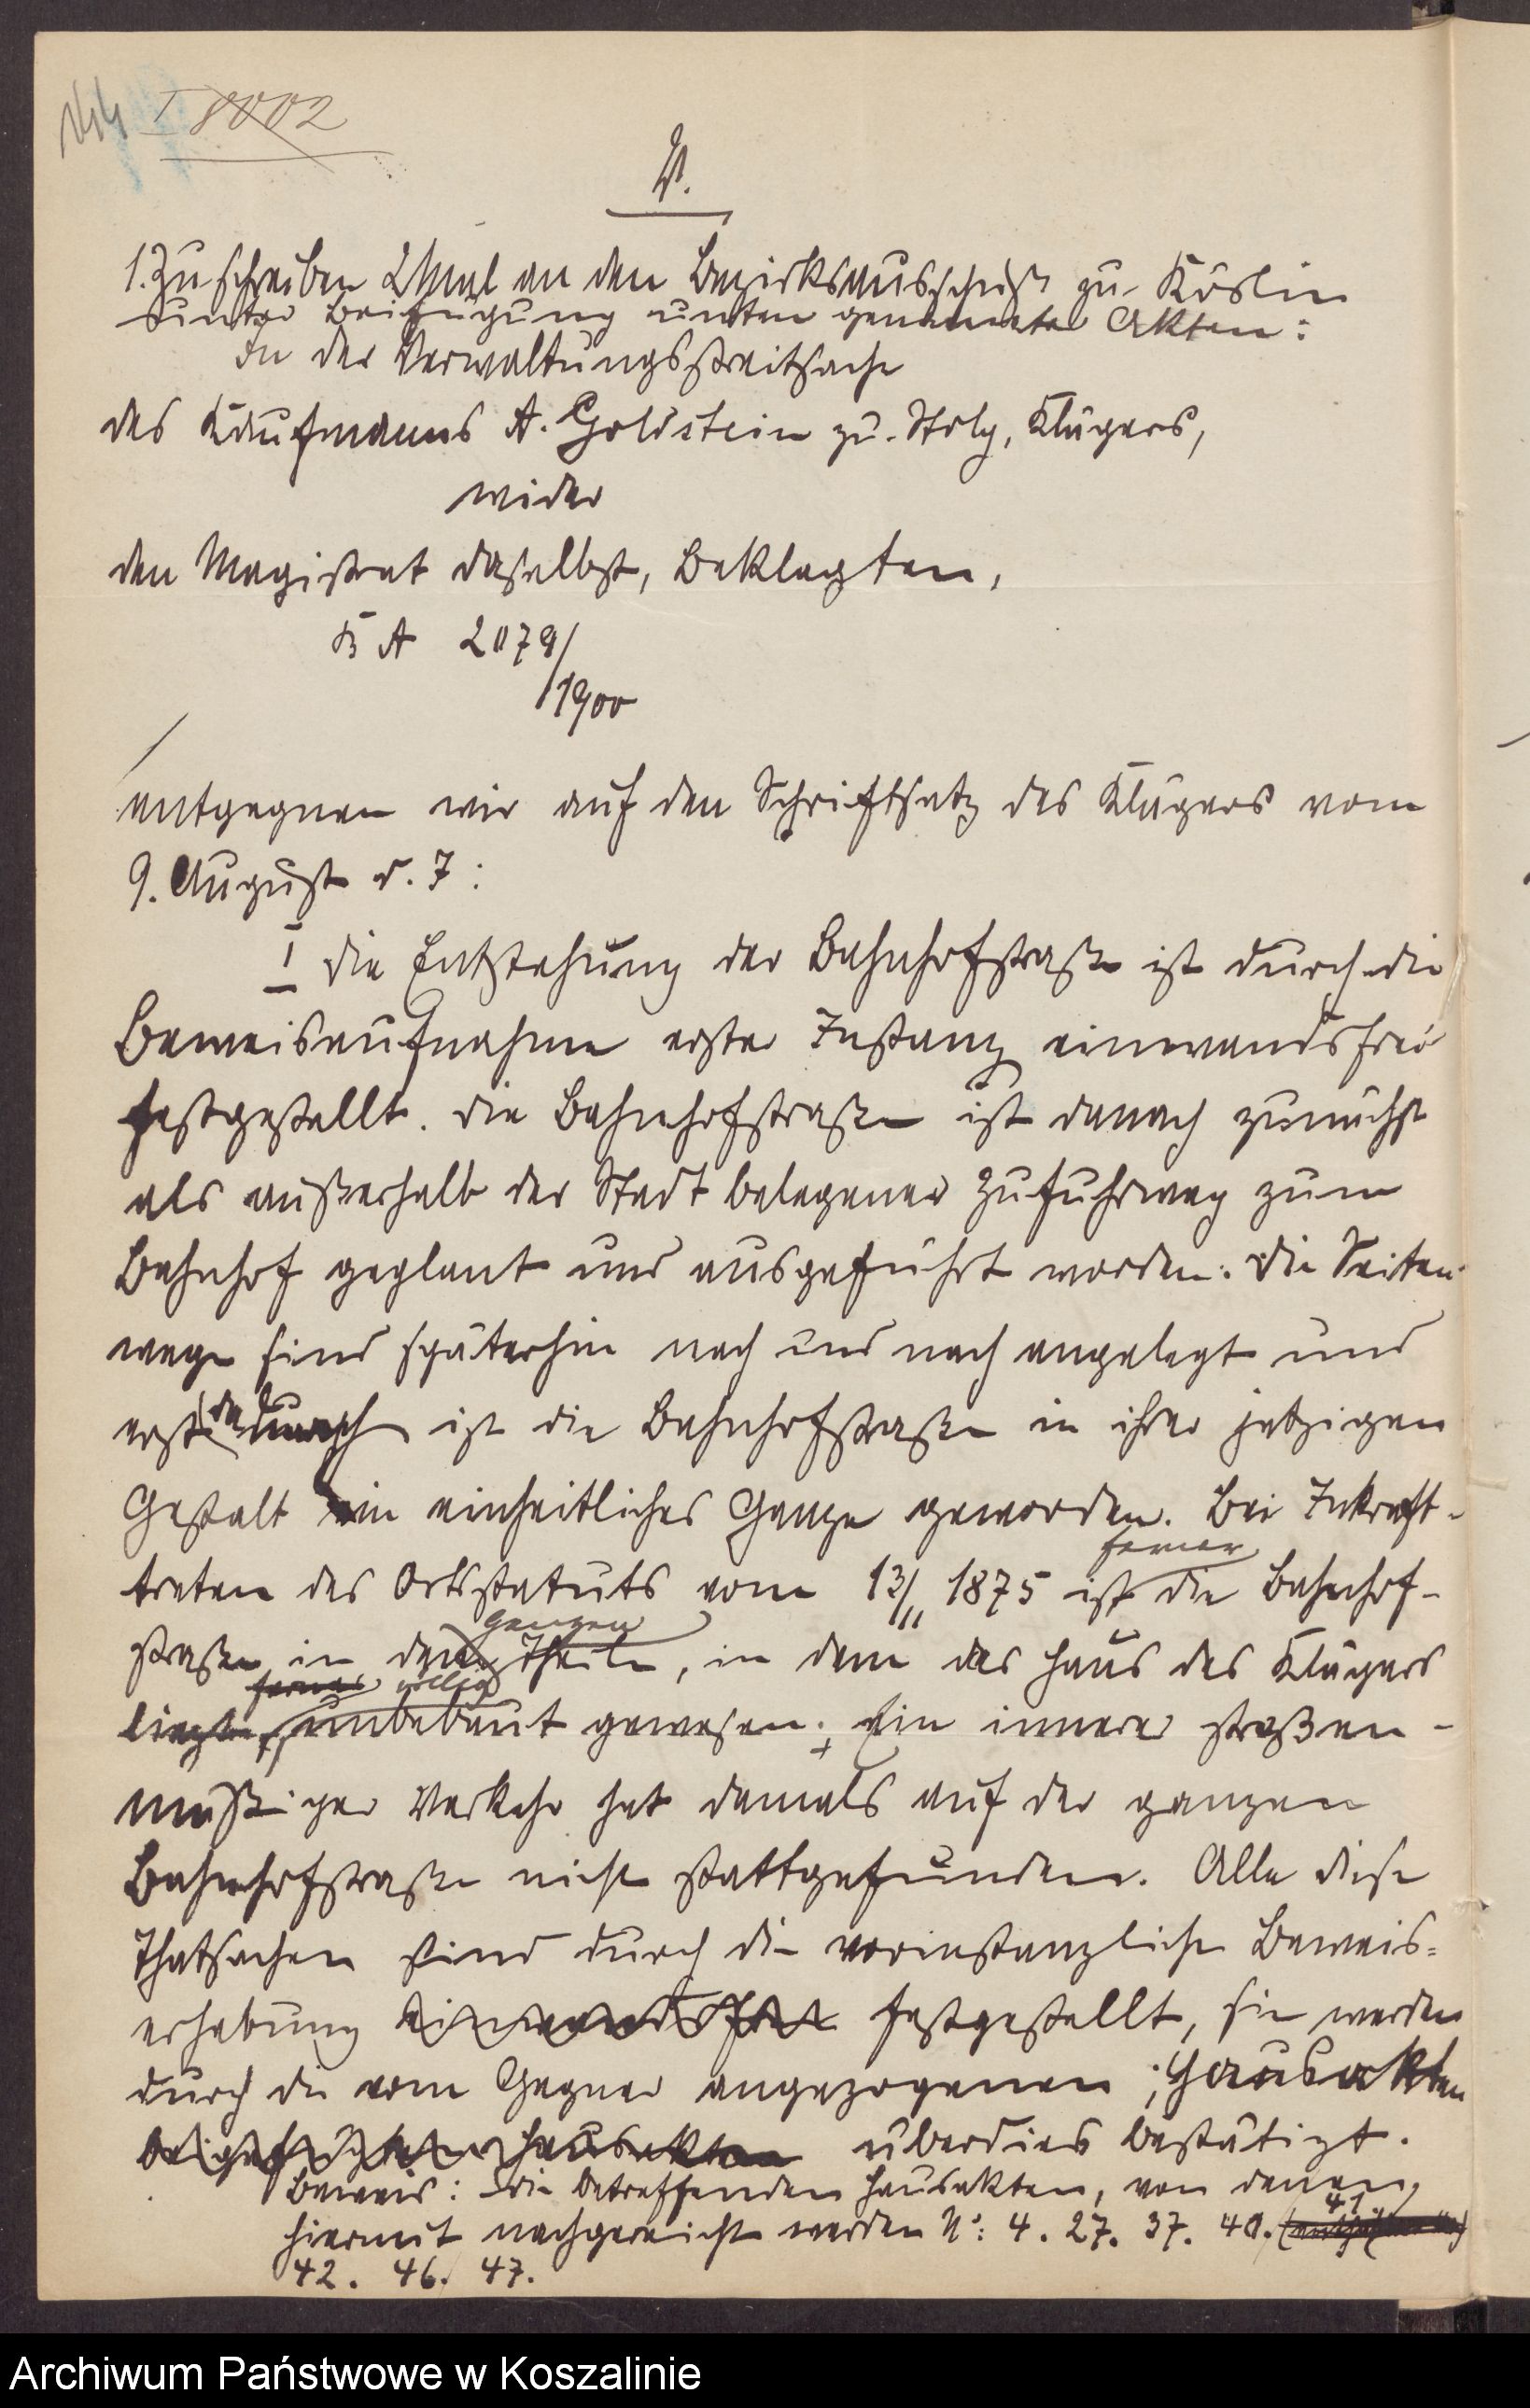 I 8002
V.
1. Zu schreiben 2 Mal an den Bezirksausschuß zu Köslin
unter Beifügung unten genannter Akten:
In der Verwaltungsstreitsache
des Kaufmanns A. Goldstein zu Stolp, Klägers,
wider
den Magistrat daselbst, Beklagten,
B A 2079/
1900
entgegnen wir auf den Schriftsatz des Klägers vom
9. August d. J:
I Die Entstehung der Bahnhofstraße ist durch die
Beweisaufnahme erster Instanz einwandsfrei
festgestellt. Die Bahnhofstraße ist danach zunächst
als außerhalb der Stadt belegener Zufuhrweg zum
Bahnhof geplant und ausgeführt worden. Die Seiten-
wege sind späterhin nach und nach angelegt und
erst dadurch ist die Bahnhofstraße in ihrer jetzigen
Gestalt ein einheitliches Ganze geworden. Bei Inkraft-
ferner
treten des Ortsstatuts vom 13/11 1875 ist die Bahnhof-
ganzen
straße in dem Theile, in dem das Haus des Klägers
ferner völlig
liegt, unbebaut gewesen. Ein innerer straßen-
mäßiger Verkehr hat damals auf der ganzen
Bahnhofstraße nicht stattgefunden. Alle diese
Thatsachen sind durch die vorinstanzliche Beweis-
erhebung einwandsfrei festgestellt, sie werden
durch die vom Gegner angezogenen Hausakten
beigefügten Hausakten überdies bestätigt.
Beweis: Die betreffenden Hausakten, von denen
hiermit nachgereicht werden No: 4. 27. 37. 40. 41.
42. 46. 47.
Archiwum Państwowe w Koszalinie